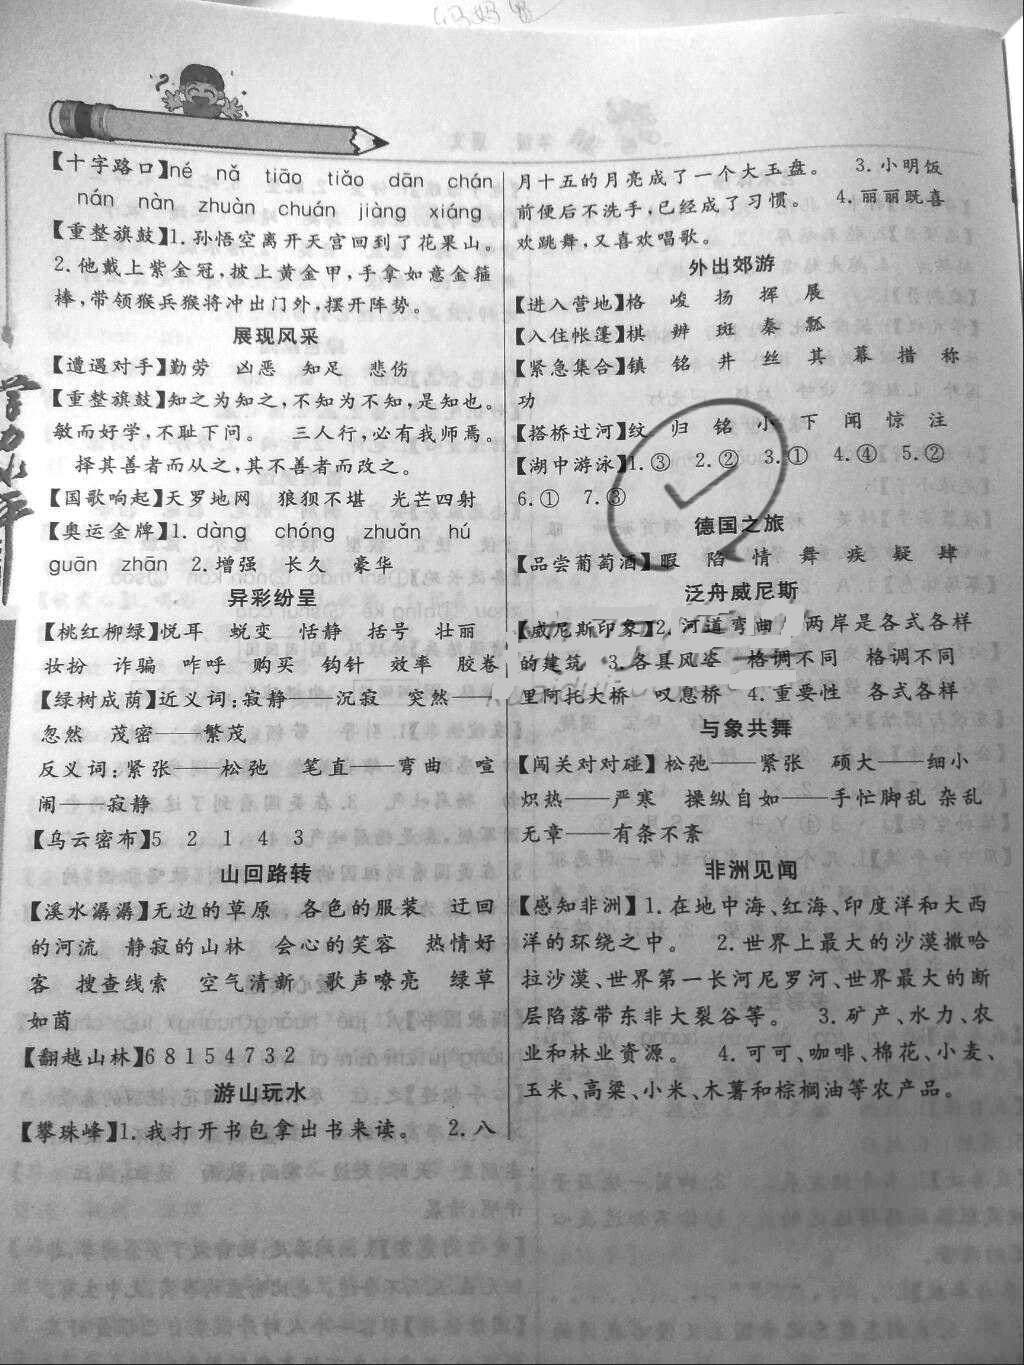 【十字路口】né nǎ tiāo tiǎo dān chán
nán nàn zhuàn chuán jiàng xiáng
【重整旗鼓】1.孙悟空离开天宫回到了花果山。
2.他戴上紫金冠,披上黄金甲,手拿如意金箍
棒,带领猴兵猴将冲出门外,摆开阵势。
展现风采
【遭遇对手】勤劳 凶恶 知足 悲伤
【重整旗鼓】知之为知之,不知为不知,是知也。
敏而好学,不耻下问。 三人行,必有我师焉。
择其善者而从之,其不善者而改之。
【国歌响起】天罗地网 狼狈不堪 光芒四射
【奥运金牌】1.dàng chóng zhuǎn hú
guān zhān 2.增强 长久 豪华
异彩纷呈
【桃红柳绿】悦耳 蜕变 恬静 括号 壮丽
妆扮 诈骗 咋呼 购买 钩针 效率 胶卷
【绿树成荫】近义词:寂静——沉寂 突然——
忽然 茂密——繁茂
反义词:紧张——松弛 笔直——弯曲 喧
闹——寂静
【乌云密布】5 2 1 4 3
山回路转
【溪水潺潺】无边的草原 各色的服装 迂回
的河流 静寂的山林 会心的笑容 热情好
客 搜查线索 空气清新 歌声嘹亮 绿草
如茵
【翻越山林】6 8 1 5 4 7 3 2
游山玩水
【攀珠峰】1.我打开书包拿出书来读。 2.八
月十五的月亮成了一个大玉盘。 3.小明饭
前便后不洗手,已经成了习惯。 4.丽丽既喜
欢跳舞,又喜欢唱歌。
外出郊游
【进入营地】格 峻 扬 挥 展
【入住帐篷】棋 辨 斑 秦 瓢
【紧急集合】镇 铭 井 丝 其 幕 措 称
功
【搭桥过河】纹 归 铭 小 下 闻 惊 注
【湖中游泳】1.③ 2.② 3.① 4.④ 5.②
6.① 7.③
德国之旅
【品尝葡萄酒】暇 陷 情 舞 疾 疑 肆
泛舟威尼斯
【威尼斯印象】2.河道弯曲 两岸是各式各样
的建筑 3.各具风姿 格调不同 格调不同
里阿托大桥 叹息桥 4.重要性 各式各样
与象共舞
【闯关对对碰】松弛——紧张 硕大——细小
炽热——严寒 操纵自如——手忙脚乱 杂乱
无章——有条不紊
非洲见闻
【感知非洲】1.在地中海、红海、印度洋和大西
洋的环绕之中。 2.世界上最大的沙漠撒哈
拉沙漠、世界第一长河尼罗河、世界最大的断
层陷落带东非大裂谷等。 3.矿产、水力、农
业和林业资源。 4.可可、咖啡、棉花、小麦、
玉米、高粱、小米、木薯和棕榈油等农产品。